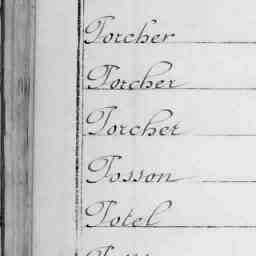 Torcher
Torcher
Torcher
Tosson
Totel